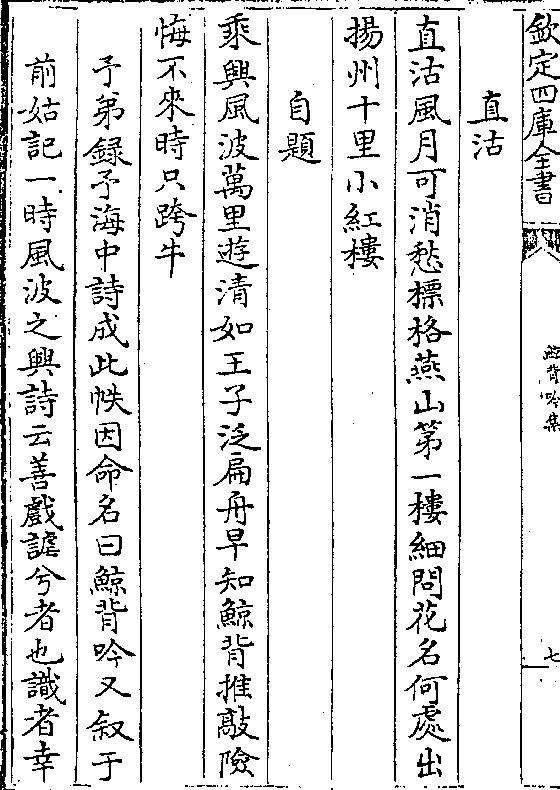 欽定四庫全書
鯨背吟集
七
直沽
直沽風月可消愁標格燕山第一樓細問花名何處出
揚州十里小紅樓
自題
乘興風波萬里遊清如王子泛扁舟早知鯨背推敲險
悔不來時只跨牛
予弟錄予海中詩成此帙因命名曰鯨背吟又叙于
前姑記一時風波之興詩云善戲謔兮者也識者幸